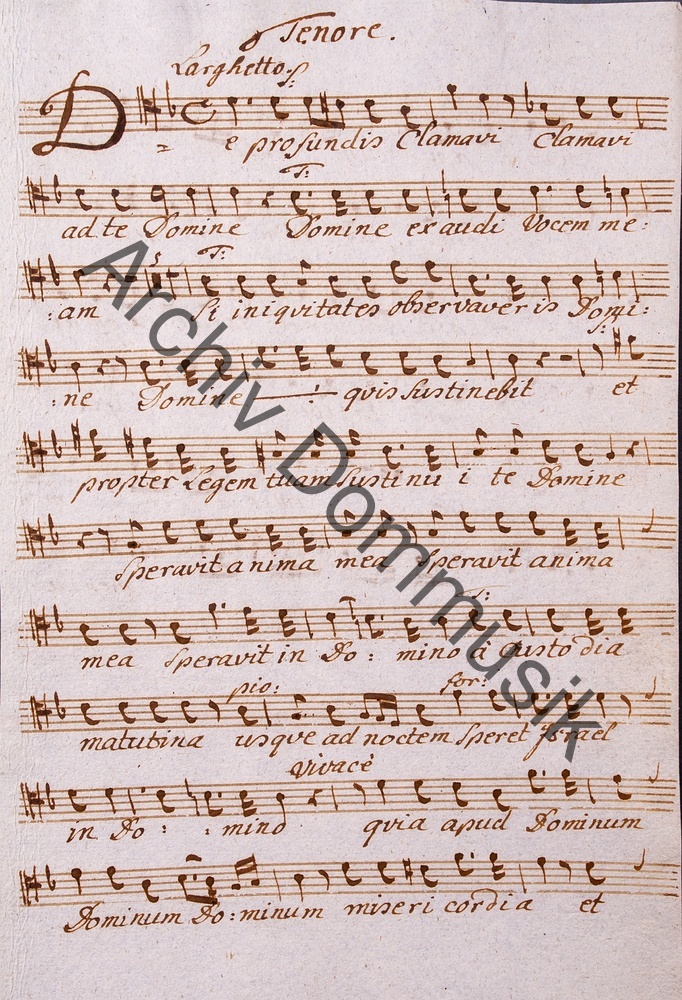 Tenore.
Larghetto.
De profundis Clamavi Clamavi
ad te Domine Domine exaudi Vocem me:
:am Si iniqvitates observaveris Domi:
:ne Domine quis sustinebit et
propter Legem tuam sustinu i te Domine
Speravit anima mea Speravit anima
mea speravit in Do: mino â Custodia
pio: for:
matutina usqve ad noctem Speret Israel
Vivacè
in Do: :mino qvia apud Dominum
Dominum Do:minum misericordia et
Archiv Dommusik